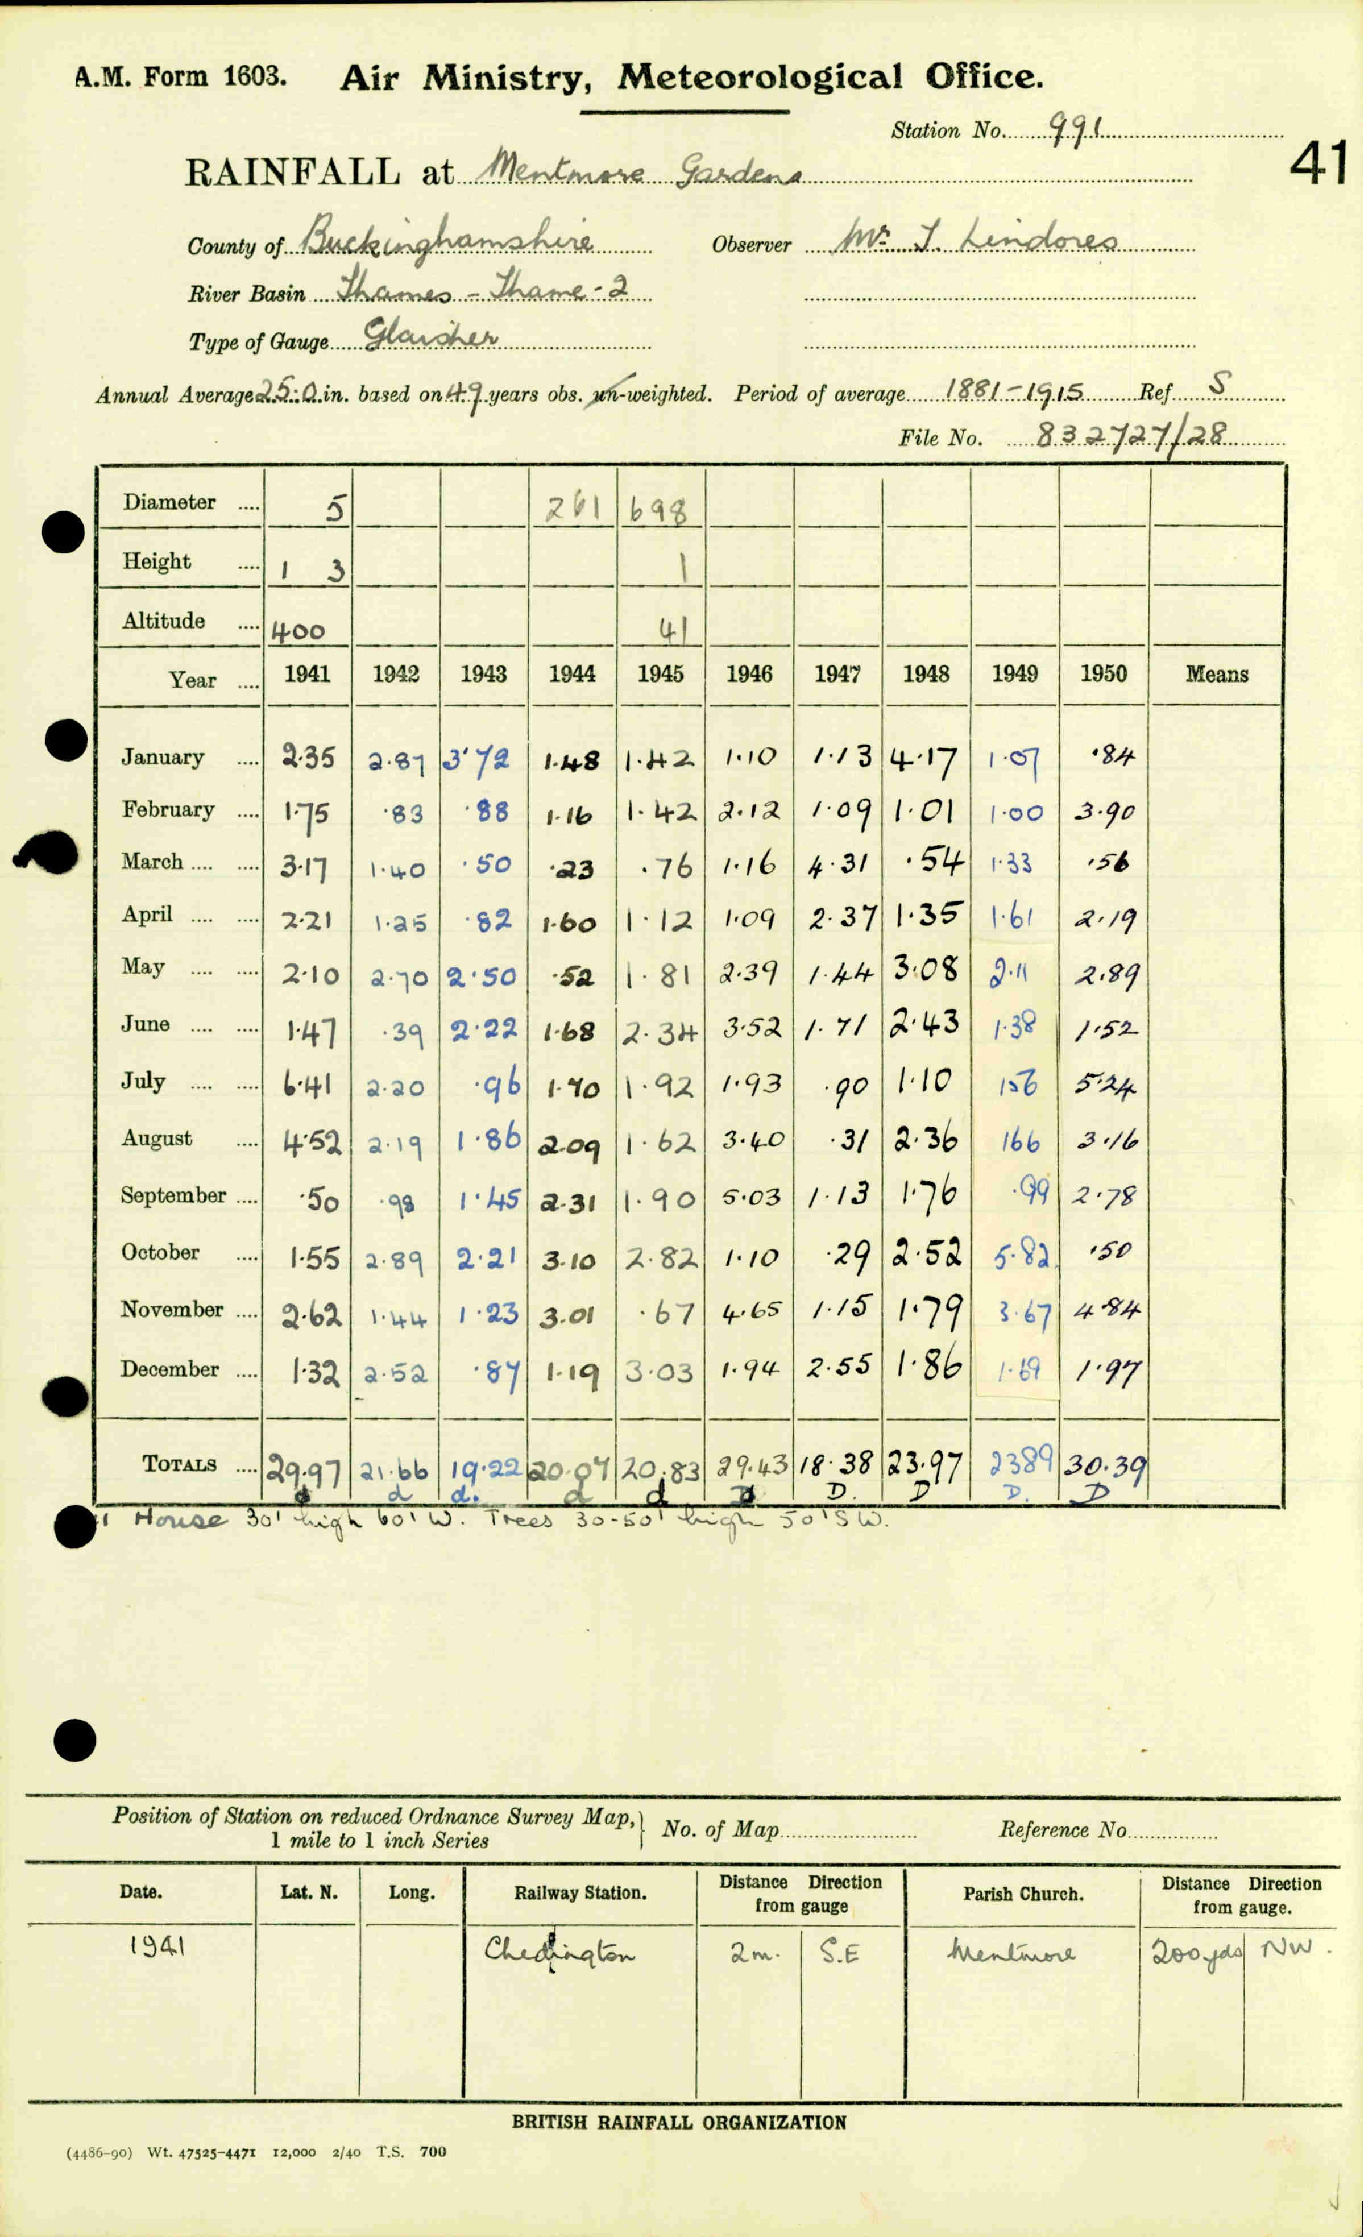 A.M. Form 1603. Air Ministry, Meteorological Office.
Station No. 991
41
RAINFALL at Mentmore Gardens
County of Buckinghamshire Observer Mr. J. Lindores
River Basin Thames - Thame - 2
Type of Gauge Glaisher
Annual Average 25.0 in. based on 49 years obs. un-weighted. Period of average 1881-1915 Ref S
File No. 832727/28
Diameter .... 5 261 698
Height .... 1 3 1
Altitude .... 400 41
Year .... 1941 1942 1943 1944 1945 1946 1947 1948 1949 1950 Means
January .... 2.35 2.87 3.72 1.48 1.42 1.10 1.13 4.17 1.07 .84
February .... 1.75 .83 .88 1.16 1.42 2.12 1.09 1.01 1.00 3.90
March .... .... 3.17 1.40 .50 .23 .76 1.16 4.31 .54 1.33 .56
April .... .... 2.21 1.25 .82 1.60 1.12 1.09 2.37 1.35 1.61 2.19
May .... .... 2.10 2.70 2.50 .52 1.81 2.39 1.44 3.08 2.11 2.89
June .... .... 1.47 .39 2.22 1.68 2.34 3.52 1.71 2.43 1.38 1.52
July .... .... 6.41 2.20 .96 1.70 1.92 1.93 .90 1.10 1.56 5.24
August .... 4.52 2.19 1.86 2.09 1.62 3.40 .31 2.36 166 3.16
September .... .50 .98 1.45 2.31 1.90 5.03 1.13 1.76 .99 2.78
October .... 1.55 2.89 2.21 3.10 2.82 1.10 .29 2.52 5.82 .50
November .... 2.62 1.44 1.23 3.01 .67 4.65 1.15 1.79 3.67 4.84
December .... 1.32 2.52 .87 1.19 3.03 1.94 2.55 1.86 1.69 1.97
TOTALS .... 29.97 21.66 19.22 20.07 20.83 29.43 18.38 23.97 2389 30.39
d d d. d d D D. D D. D
House 30' high 60' W. Trees 30-50' high 50' SW.
Position of Station on reduced Ordnance Survey Map, } No. of Map Reference No.
1 mile to 1 inch Series
Date. Lat. N. Long. Railway Station. Distance Direction from gauge Parish Church. Distance Direction from gauge.
1941 Cheddington 2 m. S.E Mentmore 200 yds NW.
BRITISH RAINFALL ORGANIZATION
(4486-90) Wt. 47525-4471 12,000 2/40 T.S. 700